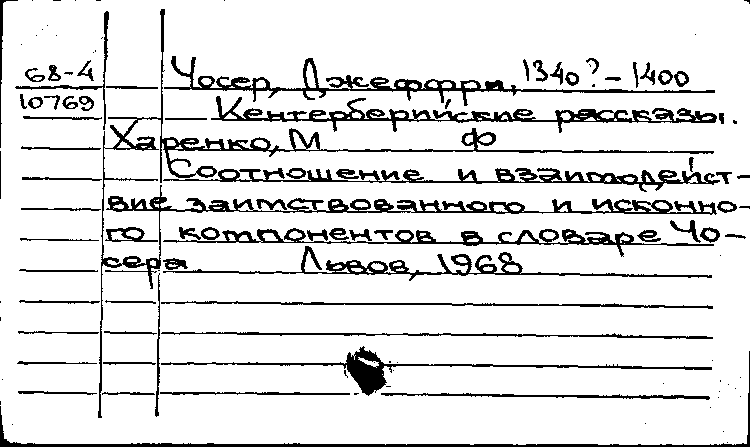 68-4 Чосер, Джеффри, 1340?-1400
10769 Кентерберийские рассказы.
Харенко, М Ф
Соотношение и взаимодейст-
вие заимствованного и исконно-
го компонентов в словаре Чо-
сера. Львов, 1968